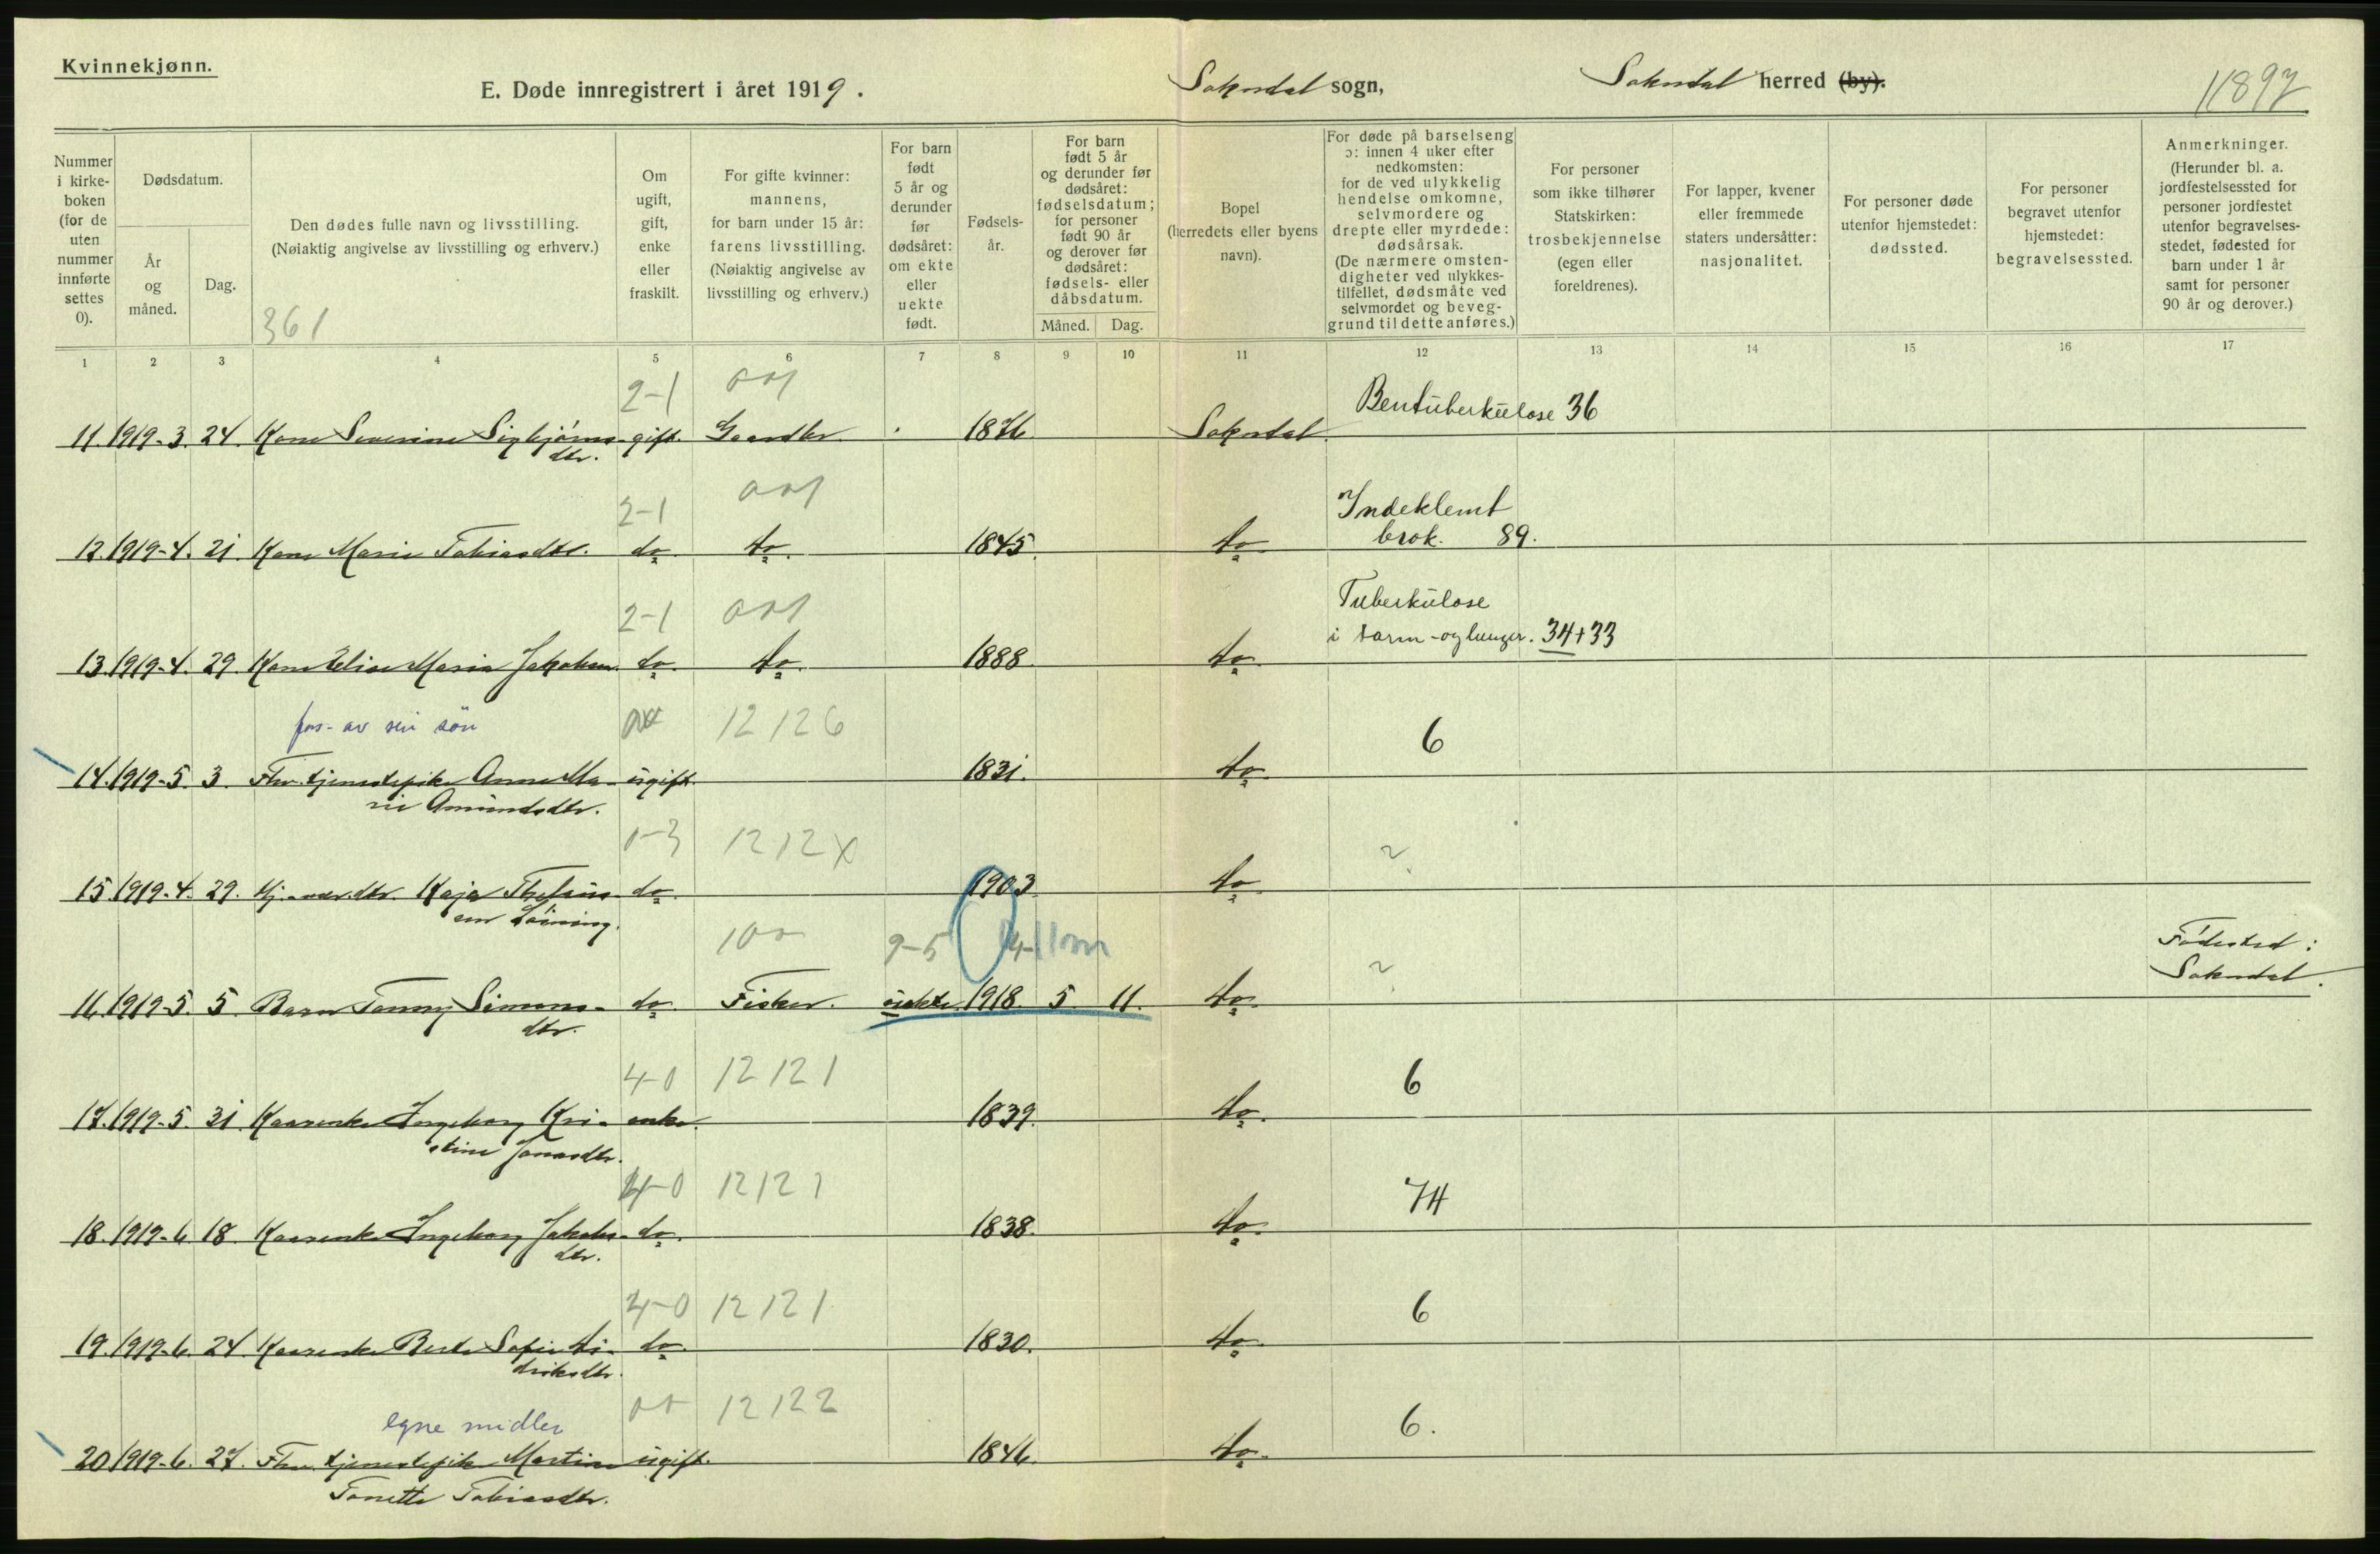 Kvinnekjønn.
E. Døde innregistrert i året 1919. Sokndal sogn, Sokndal herred (by).
11897
Nummer i kirke- boken (for de uten nummer innførte settes 0).
Dødsdatum.
År og måned.
Dag.
Den dødes fulle navn og livsstilling.
(Nøiaktig angivelse av livsstilling og erhverv.)
361
Om ugift, gift, enke eller fraskilt.
For gifte kvinner: mannens, for barn under 15 år: farens livsstilling. (Nøiaktig angivelse av livsstilling og erhverv.)
For barn født 5 år og derunder før dødsåret: om ekte eller uekte født.
Fødsels- år.
For barn født 5 år og derunder før dødsåret: fødselsdatum; for personer født 90 år og derover før dødsåret: fødsels- eller dåbsdatum.
Måned. Dag.
Bopel (herredets eller byens navn).
For døde på barselseng ɔ: innen 4 uker efter nedkomsten: for de ved ulykkelig hendelse omkomne, selvmordere og drepte eller myrdede: dødsårsak. (De nærmere omsten- digheter ved ulykkes- tilfellet, dødsmåte ved selvmordet og beveg- grund til dette anføres.)
For personer som ikke tilhører Statskirken: trosbekjennelse (egen eller foreldrenes).
For lapper, kvener eller fremmede staters undersåtter: nasjonalitet.
For personer døde utenfor hjemstedet: dødssted.
For personer begravet utenfor hjemstedet: begravelsessted.
Anmerkninger. (Herunder bl. a. jordfestelsessted for personer jordfestet utenfor begravelses- stedet, fødested for barn under 1 år samt for personer 90 år og derover.)
1 2 3 4 5 6 7 8 9 10 11 12 13 14 15 16 17
2-1
Bentuberkulose 36
11. 1919-3. 24. Kone Severine Sigbjørns- gift. Gaardbr. 1876. Sokndal.
dtr.
2-1
Indeklemt
brok. 89.
12. 1919-4. 21. Kone Marie Tobiasdtr. do. do. 1845. do.
2-1
Tuberkulose
i tarm-og lunger. 34+33
13. 1919-4. 29. Kone Elise Maria Jakobsen do. do. 1888. do.
fors. av sin søn 12 126
6
14. 1919-5. 3. Fhv. tjenestepike Anne Ma- ugift. 1831. do.
rie Amundsdtr.
1-3 12 12X
?
15. 1919-4. 29. Kaja do. 1903. do.
10
9-5 11m
?
Fødested:
Sokndal.
16. 1919-5. 5. Barn Fanny Simons- do. Fisker. uekte. 1918. 5 11. do.
dtr.
4-0 12 121
6
17. 1919-5. 31. Kaarenke Ingeborg Kri- enke. 1839. do.
stine Jonasdtr.
4-0 12 121
74
18. 1919-6. 18. Kaarenke Ingeborg Jakobs- do. 1838. do.
dtr.
4-0 12 121
6
19. 1919-6. 24. Kaarenke Berte Sofie do. 1830. do.
driksdtr.
egne midler 12 122
6.
20. 1919-6. 27. Fhv. tjenestepike Martine ugift. 1846. do.
Tonette Tobiasdtr.